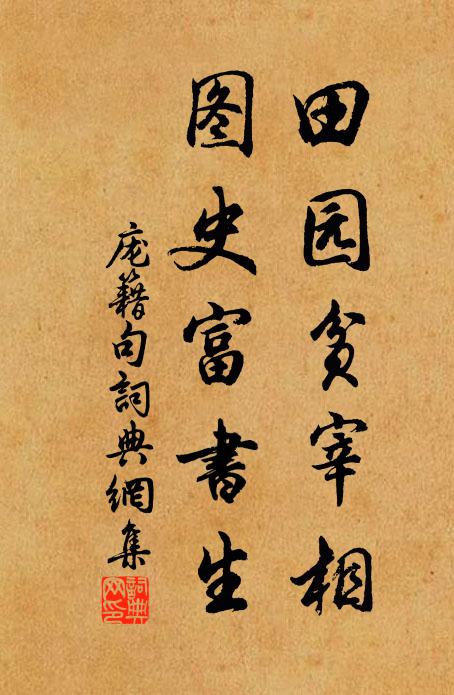 田园贫宰相
图史富书生
庞籍句詞典網集
詞典网印